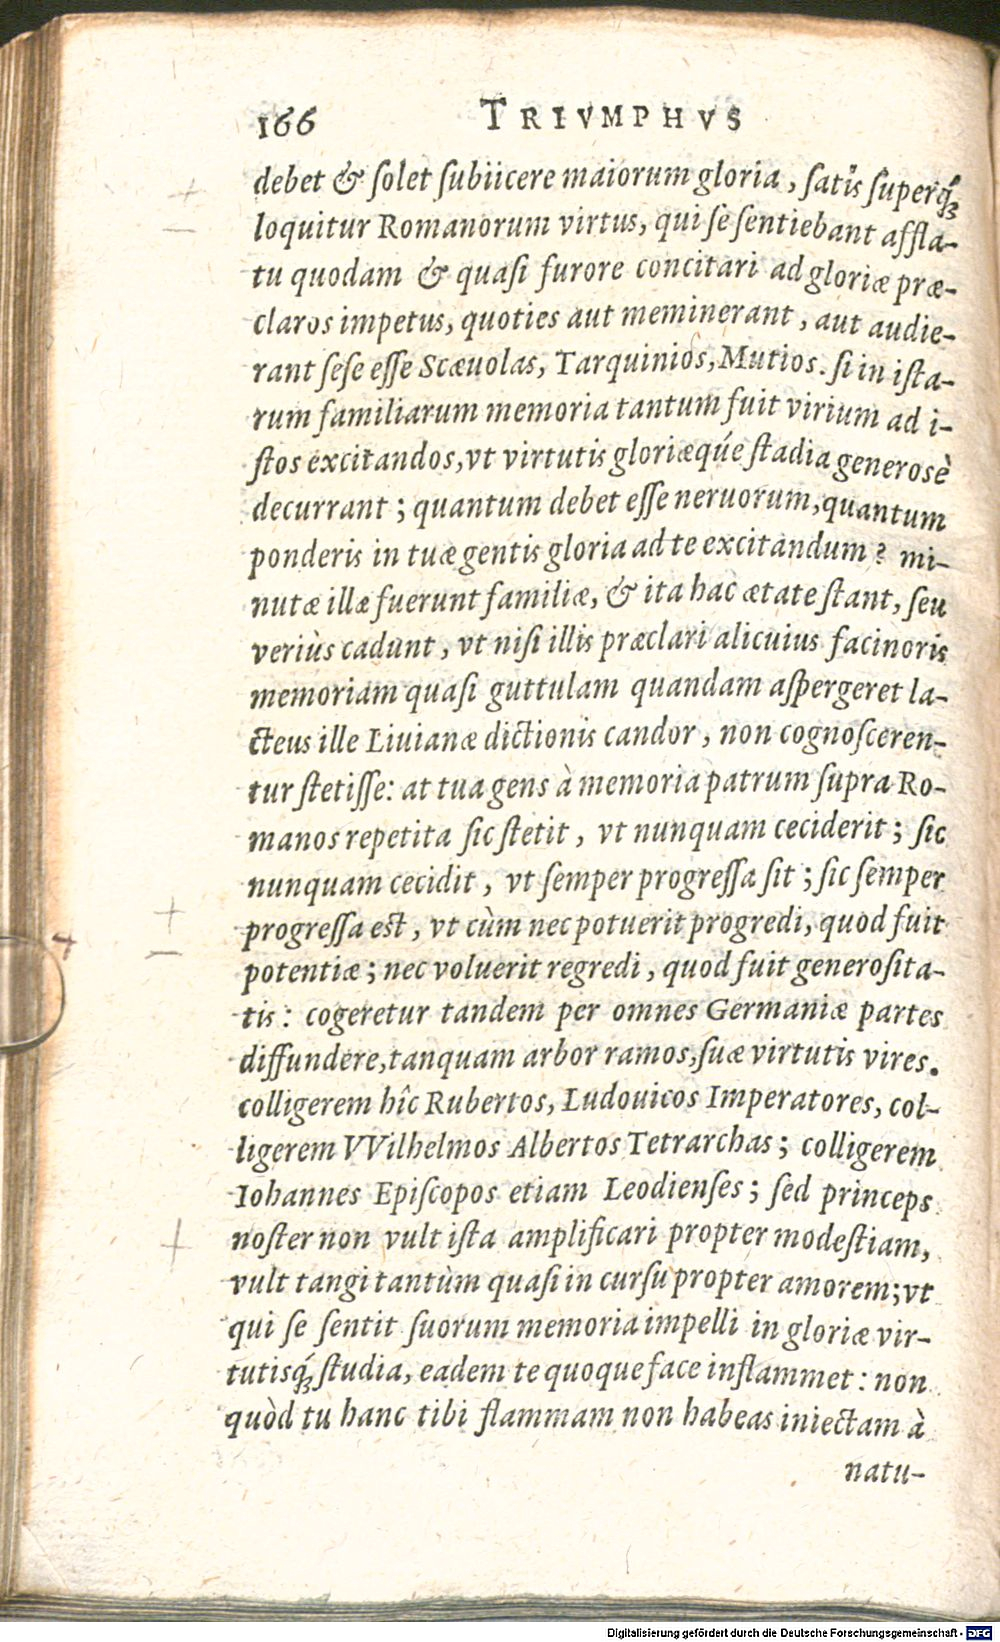 166 TRIVMPHVS
debet & ſolet ſubiicere maiorum gloria, ſatis ſuperq́ꝫ
loquitur Romanorum virtus, qui ſe ſentiebant affla-
tu quodam & quaſi furore concitari ad gloriæ præ-
claros impetus, quoties aut meminerant, aut audie-
rant ſeſe eſſe Scæuolas, Tarquinios, Mutios. ſi in iſta-
rum familiarum memoria tantum fuit virium ad i-
ſtos excitandos, vt virtutis gloriæqúe ſtadia generosè
decurrant; quantum debet eſſe neruorum, quantum
ponderis in tuæ gentis gloria ad te excitandum? mi-
nutæ illæ fuerunt familiæ, & ita hac ætate ſtant, ſeu
veriùs cadunt, vt niſi illis præclari alicuius facinoris
memoriam quaſi guttulam quandam aſpergeret la-
cteus ille Liuianæ dictionis candor, non cognoſceren-
tur ſtetiſſe: at tua gens à memoria patrum ſupra Ro-
manos repetita ſic ſtetit, vt nunquam ceciderit; ſic
nunquam cecidit, vt ſemper progreſſa ſit; ſic ſemper
progreſſa est, vt cùm nec potuerit progredi, quod fuit
potentiæ; nec voluerit regredi, quod fuit generoſita-
tis: cogeretur tandem per omnes Germaniæ partes
diffundere, tanquam arbor ramos, ſuæ virtutis vires.
colligerem hîc Rubertos, Ludouicos Imperatores, col-
ligerem VVilhelmos Albertos Tetrarchas; colligerem
Iohannes Epiſcopos etiam Leodienſes; ſed princeps
noſter non vult iſta amplificari propter modeſtiam,
vult tangi tantùm quaſi in curſu propter amorem; vt
qui ſe ſentit ſuorum memoria impelli in gloriæ vir-
tutisq́ꝫ ſtudia, eadem te quoque face inflammet: non
quòd tu hanc tibi flammam non habeas iniectam à
natu-
Digitalisierung gefördert durch die Deutsche Forschungsgemeinschaft - DFG